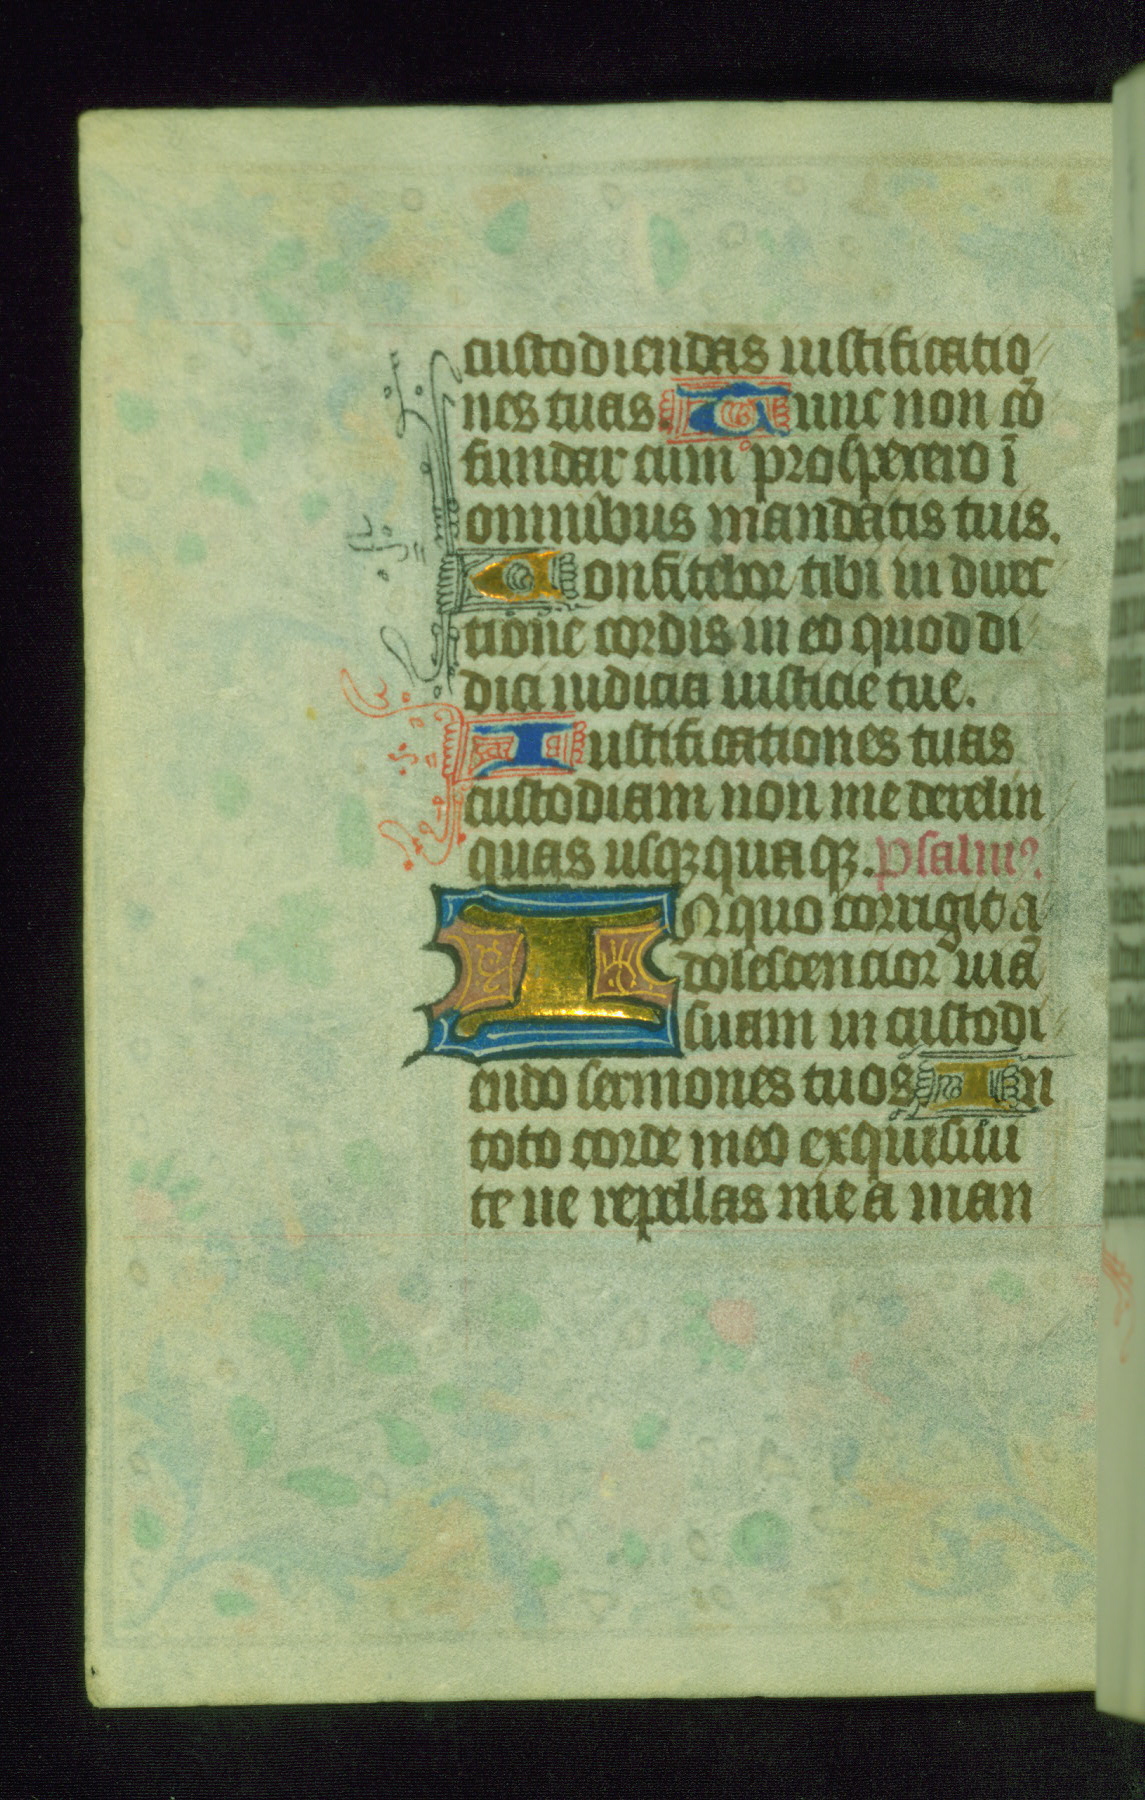 custodiendas iustificatio
nes tuas Tunc non cō
fundar cum prospexero ī
omnibus mandatis tuis.
Confitebor tibi in direc
tione cordis in eo quod di
dici iudicia iusticie tue.
Iustificationes tuas
custodiam non me derelin
quas usqꝫquaqꝫ. psalmꝰ.
IN quo corrigit a
dolescencior uiā
suam in custodi
endo sermones tuos In
toto corde meo exquisiui
te ne repellas me a man